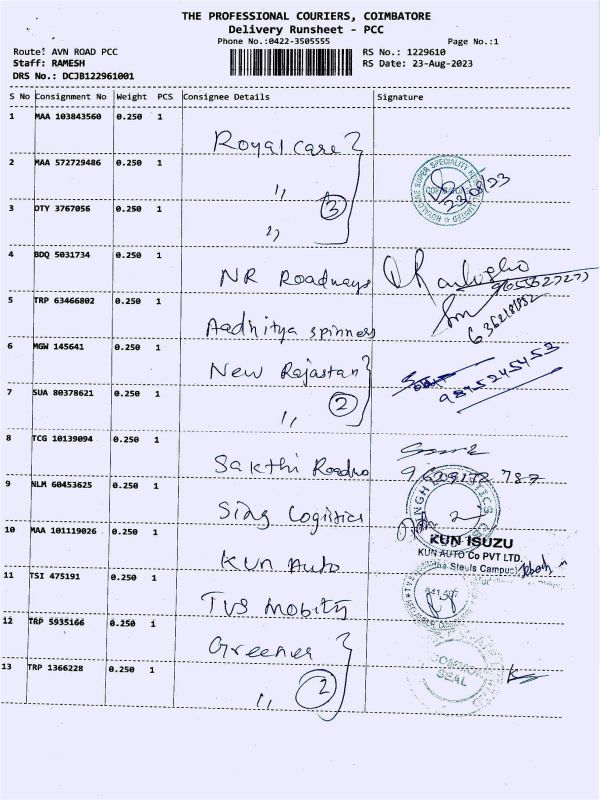 THE PROFESSIONAL COURIERS, COIMBATORE
Delivery Runsheet - PCC
Phone No.:0422-3505555 Page No.:1
Route: AVN ROAD PCC RS No.: 1229610
Staff: RAMESH RS Date: 23-Aug-2023
DRS No.: DCJB122961001
S No Consignment No Weight PCS Consignee Details Signature
1 MAA 103843560 0.250 1
Royal care
2 MAA 572729486 0.250 1
23/08/23
" 3
3 OTY 3767056 0.250 1
"
4 BDQ 5031734 0.250 1
NR Roadways
5 TRP 63466802 0.250 1
Aadhitya spinners
6 MGW 145641 0.250 1
New Rajastan
9845245453
7 SUA 80378621 0.250 1
" 2
8 TCG 10139094 0.250 1
Sakthi Roadno
9 NLM 60453625 0.250 1
Sing Logistics
10 MAA 101119026 0.250 1
KUN ISUZU
KUN AUTO Co PVT LTD.
Kun Auto
11 TSI 475191 0.250 1
TVS Mobility
12 TRP 5935166 0.250 1
Greener
COMMON
SEAL
13 TRP 1366228 0.250 1
" 2